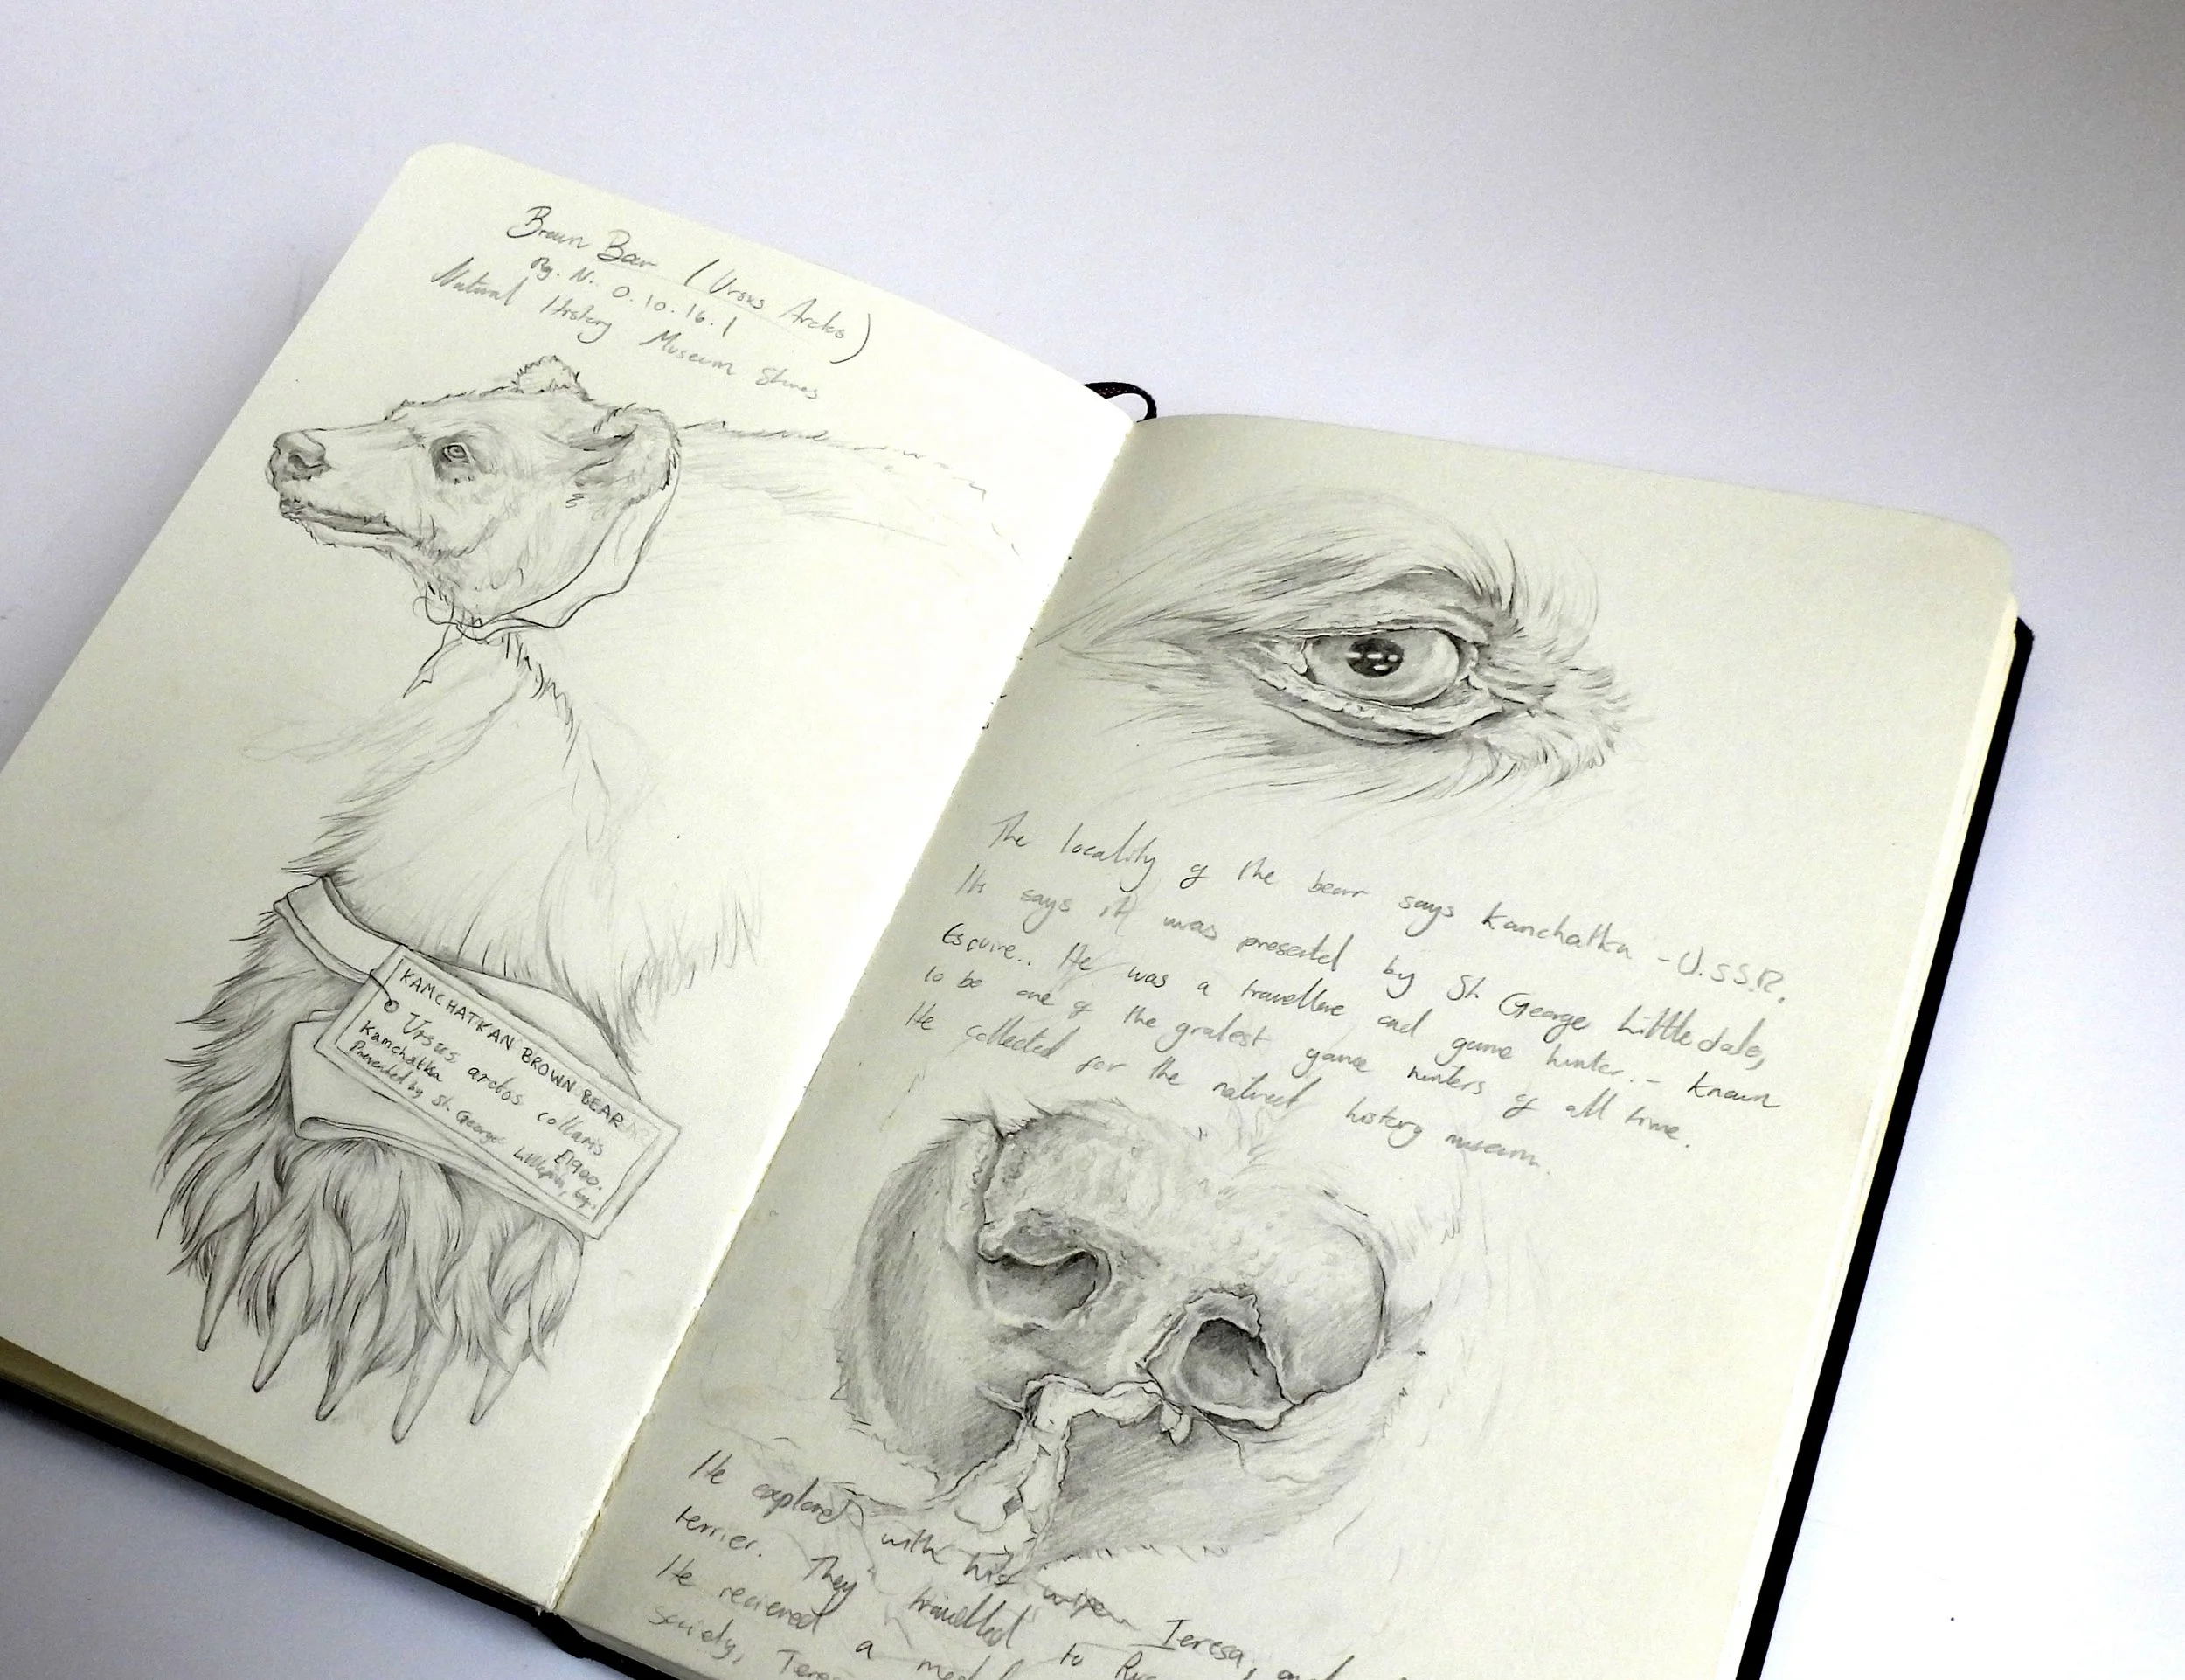 Brown Bear (Ursus Arctos)
Rg. N. 0.10.16.1
Natural History Museum Stores
KAMCHATKAN BROWN BEAR
Ursus arctos collaris
Kamchatka £1900.
Presented by St. George
The locality of the bear says Kamchatka - U.S.S.R.
It says it was presented by St. George Littledale,
Esquire.. He was a traveller and game hunter. - known
to be one of the gratest game hunters of all time.
He collected for the natural history museum.
He explored with his wife Teresa, and
terrier. They travelled to
He recieved a
society,